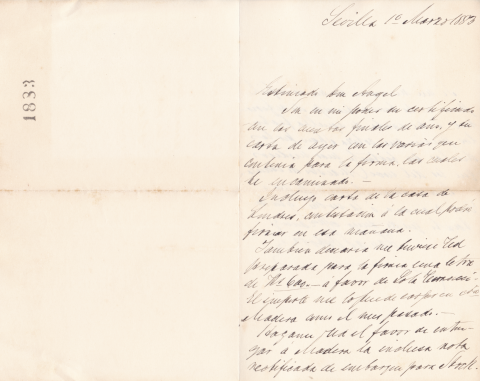 1833
Sevilla 1º Marzo 1883
Estimado Don Angel
en mi poder su certificado
con las cuentas finales de año, y su
carta de ayer con las varias que
contenia para la firma, las cuales
he encaminado.—
Incluyo carta de la casa de
Londres, contestacion á la cual podré
firmar en esa mañana.
Tambien desearia me tuviese Ud
preparada para la firma una letra
de á favor de
El importe me lo puede en
á Madera como el mes pasado.—
Hagame Ud el favor de entre
gar á Madera la inclusa nota
rectificada de embarque para